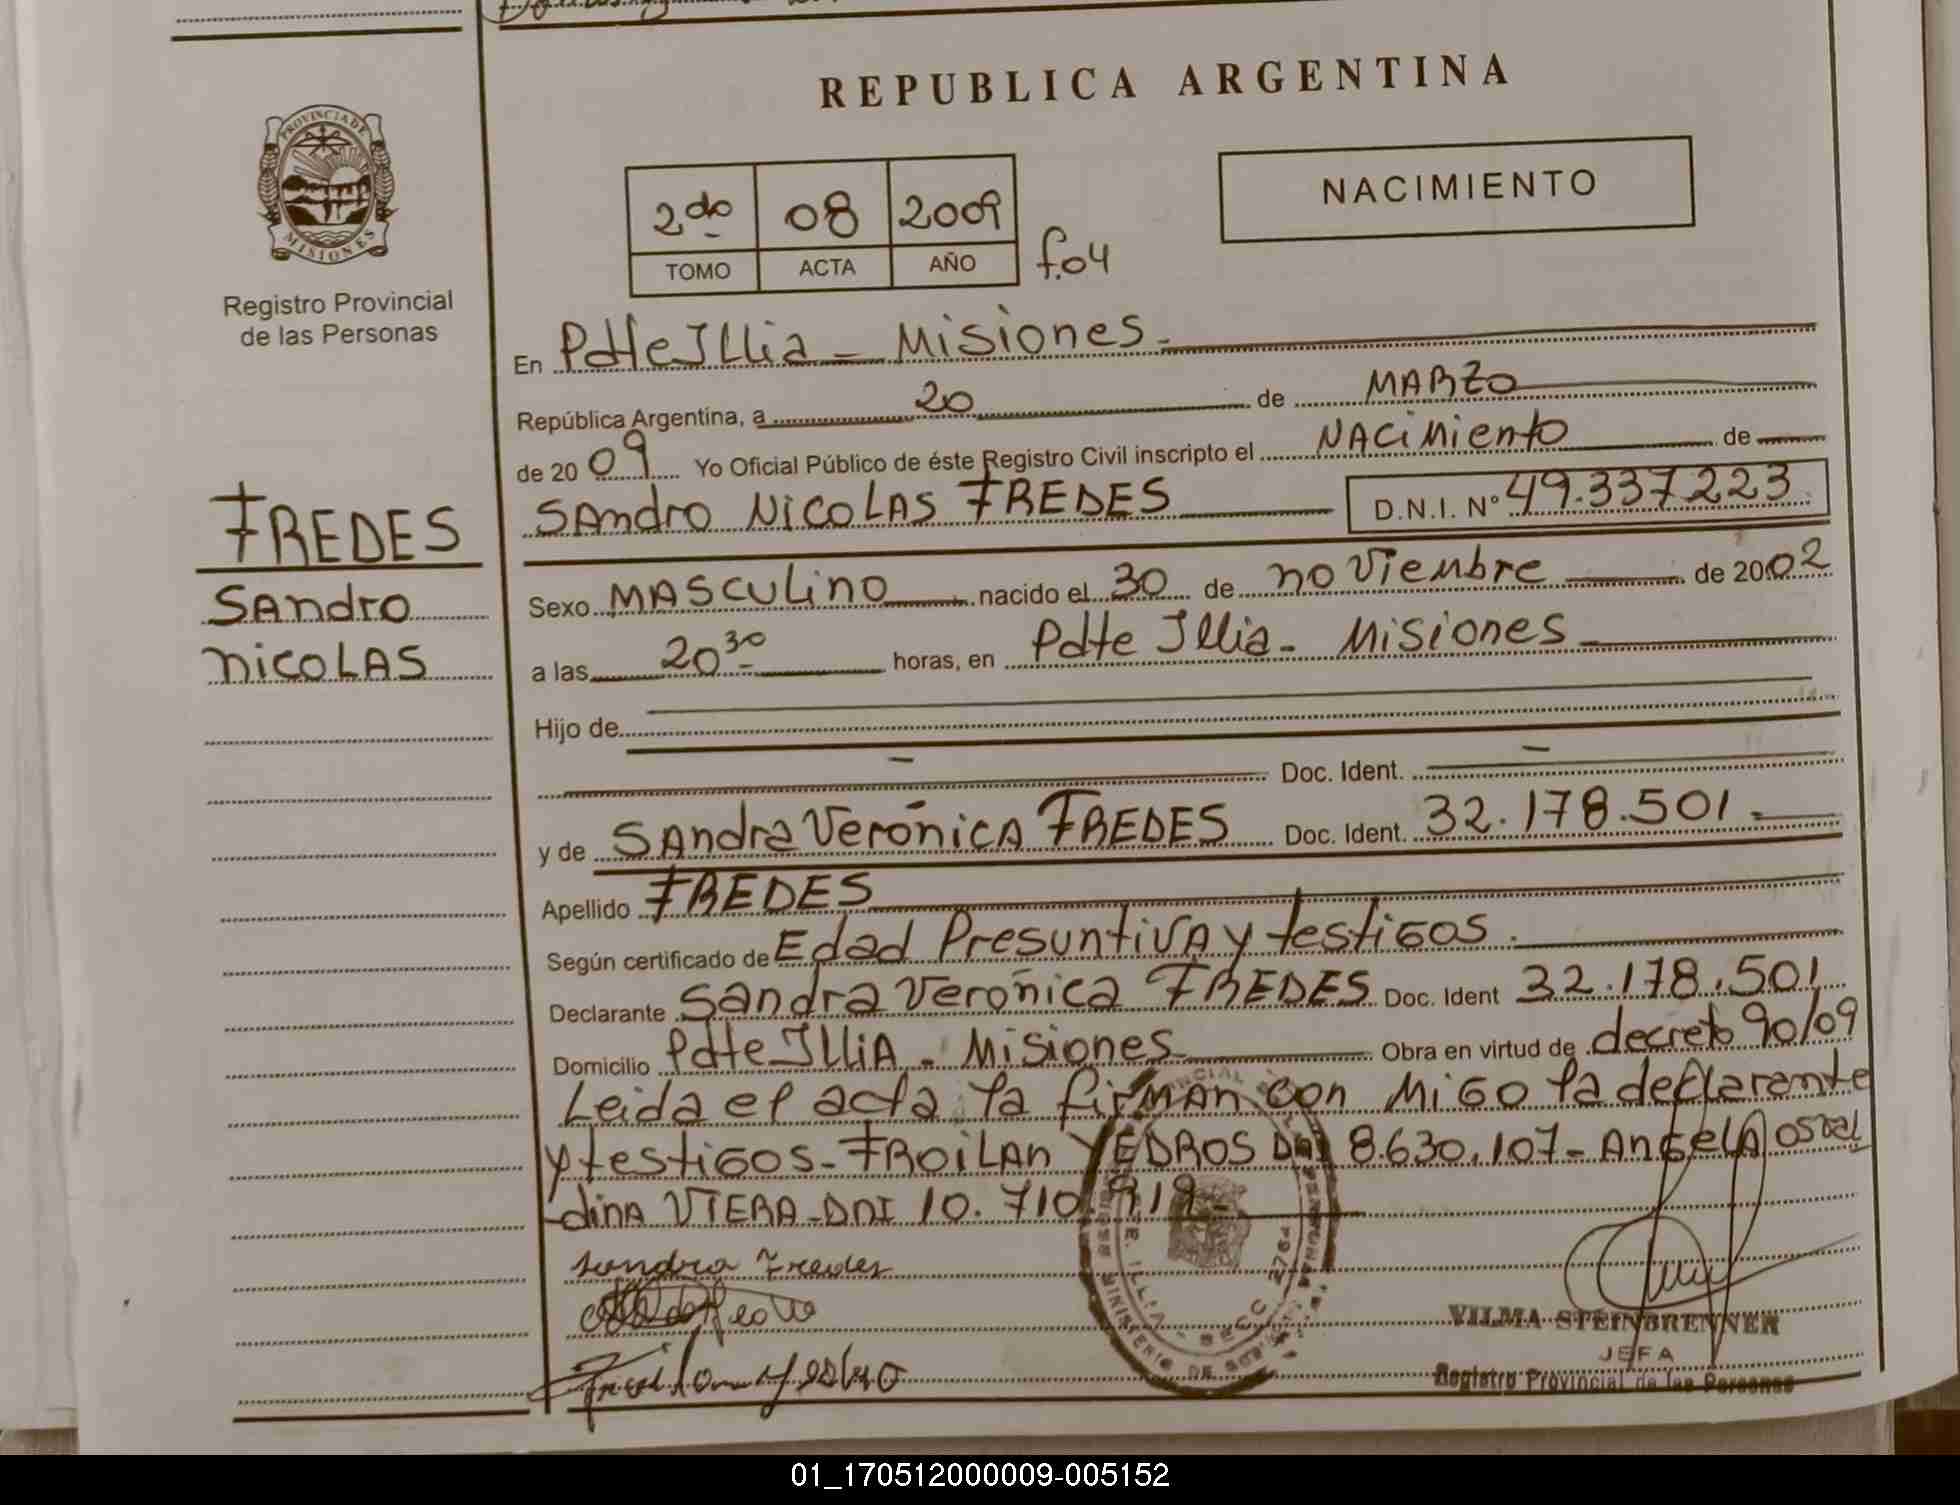 REPUBLICA ARGENTINA
PROVINCIA DE
MISIONES
Registro Provincial
de las Personas
2do 08 2009
TOMO ACTA AÑO
f.04
NACIMIENTO
En Pdte Illia - Misiones.-
República Argentina, a 20 de MARZO
de 2009 Yo Oficial Público de éste Registro Civil inscripto el NACiMiento de
SAndro NicoLAS FREDES D.N.I. N° 49.337223
FREDES
SAndro
nicoLAS
Sexo MASCULino nacido el 30 de noViembre de 2002
a las 20 30 horas, en Pdte Illia - Misiones
Hijo de
- Doc. Ident. -
y de SAndra Verónica FREDES Doc. Ident. 32.178.501.-
Apellido FREDES
Según certificado de Edad PresuntivA y testiGos.
Declarante Sandra Verónica FREDES Doc. Ident 32.178.501
Domicilio Pdte IlliA - Misiones Obra en virtud de decreto 90/09
Leida el acta la firMAn con MiGo la declarante
y testiGos - FROiLAn YEDROS DNI 8.630.107 - AnGelA osval
-dinA VIERA - DnI 10.710.919-
Sandra Fredes
VILMA STEINBRENNER
JEFA
Registro Provincial de las Personas
01_170512000009-005152